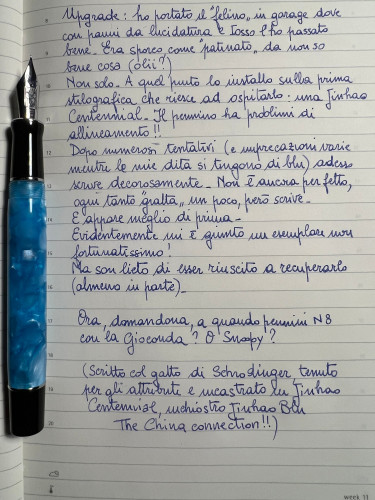 8
Upgrade: ho portato il "felino" in garage dove
con panni da lucidatura e Iosso l'ho passato
9
bene. Era sporco, come "patinato", da non so
bene cosa (olii?)
10
Non solo. A quel punto lo installo sulla prima
stilografica che riesce ad ospitarlo: una Jinhao
11
Centennial. Il pennino ha problimi di
allineamento!!
12
Dopo numerosi tentativi (e imprecazioni varie
mentre le mie dita si tingono di blu) adesso
13
scrive decorosamente. Non è ancora perfetto,
ogni tanto "gratta" un poco, però scrive.
14
E appare meglio di prima.
Evidentemente mi è giunto un esemplare non
15
fortunatissimo!
Ma son lieto di esser riuscito a recuperarlo
16
(almeno in parte).
17
Ora, domandona, a quando pennini N8
con la Gioconda? O Snoopy?
18
(Scritto col gatto di Schrodinger tenuto
19
per gli attributi e incastrato in Jinhao
Centennial, inchiostro Jinhao Blu
20
The China connection!!)
week 11